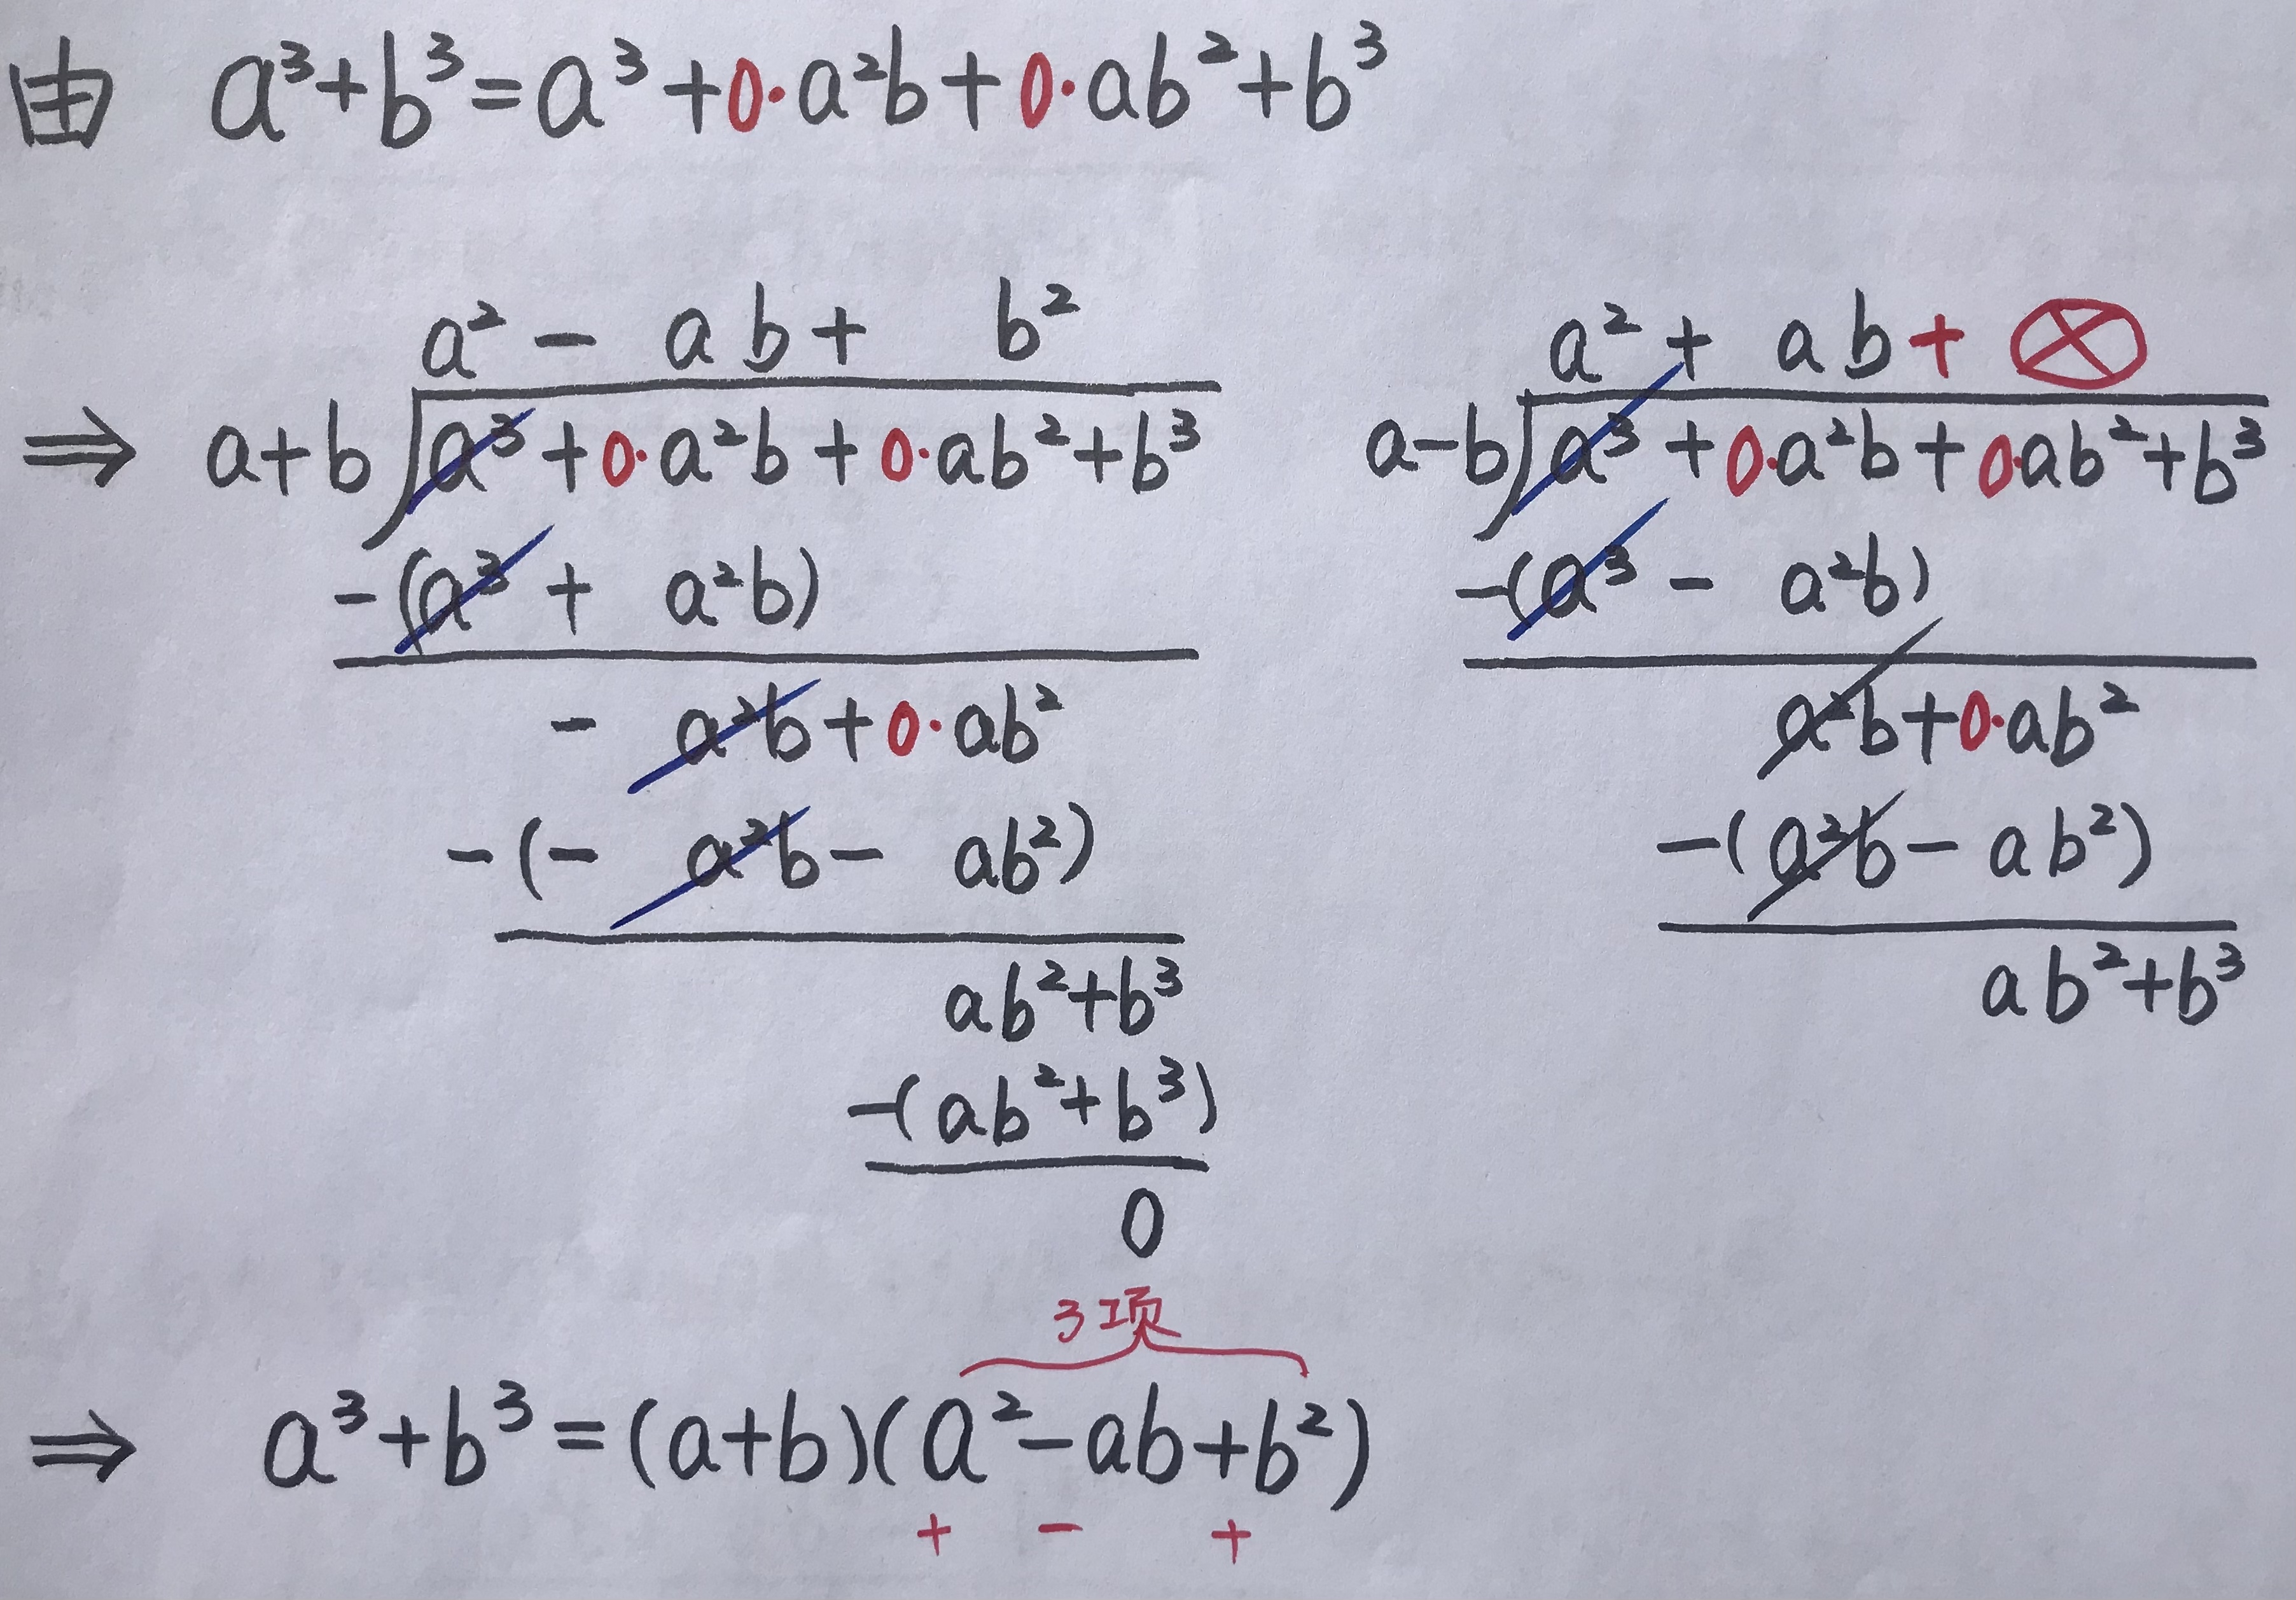 由 a³+b³=a³+0·a²b+0·ab²+b³
a² - ab + b²
⇒ a+b a³+0·a²b+0·ab²+b³
-(a³ + a²b)
- a²b+0·ab²
-(- a²b - ab²)
ab²+b³
-(ab²+b³)
0
a² + ab + ⊗
a-b a³+0·a²b+0·ab²+b³
-(a³ - a²b)
a²b+0·ab²
-(a²b - ab²)
ab²+b³
3项
⇒ a³+b³=(a+b)(a²-ab+b²)
+ - +